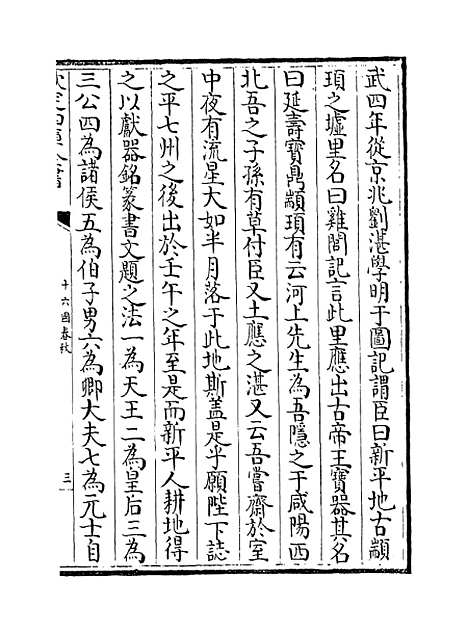 武四年從京兆劉湛學明于圖記謂臣曰新平地古顓
頊之墟里名曰雞閭記言此里應出古帝王寶器其名
曰延壽寶鼎顓頊有云河上先生為吾隱之于咸陽西
北吾之子孫有草付臣又土應之湛又云吾嘗齋於室
中夜有流星大如半月落于此地斯蓋是乎願陛下誌
之平七州之後出於壬午之年至是而新平人耕地得
之以獻器銘篆書文題之法一為天王二為皇后三為
三公四為諸侯五為伯子男六為卿大夫七為元士自
欽定四庫全書
十六國春秋
三